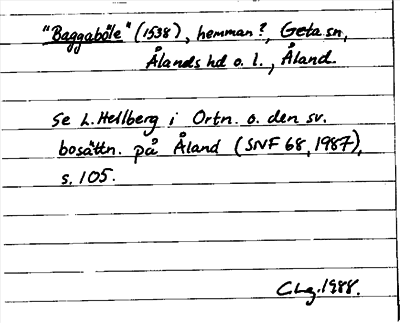 "Baggaböle" (1538), hemman?, Geta sn,
Ålands hd o. l., Åland.
Se L. Hellberg i Ortn. o. den sv.
bosättn. på Åland (SNF 68, 1987),
s. 105.
CLg. 1988.